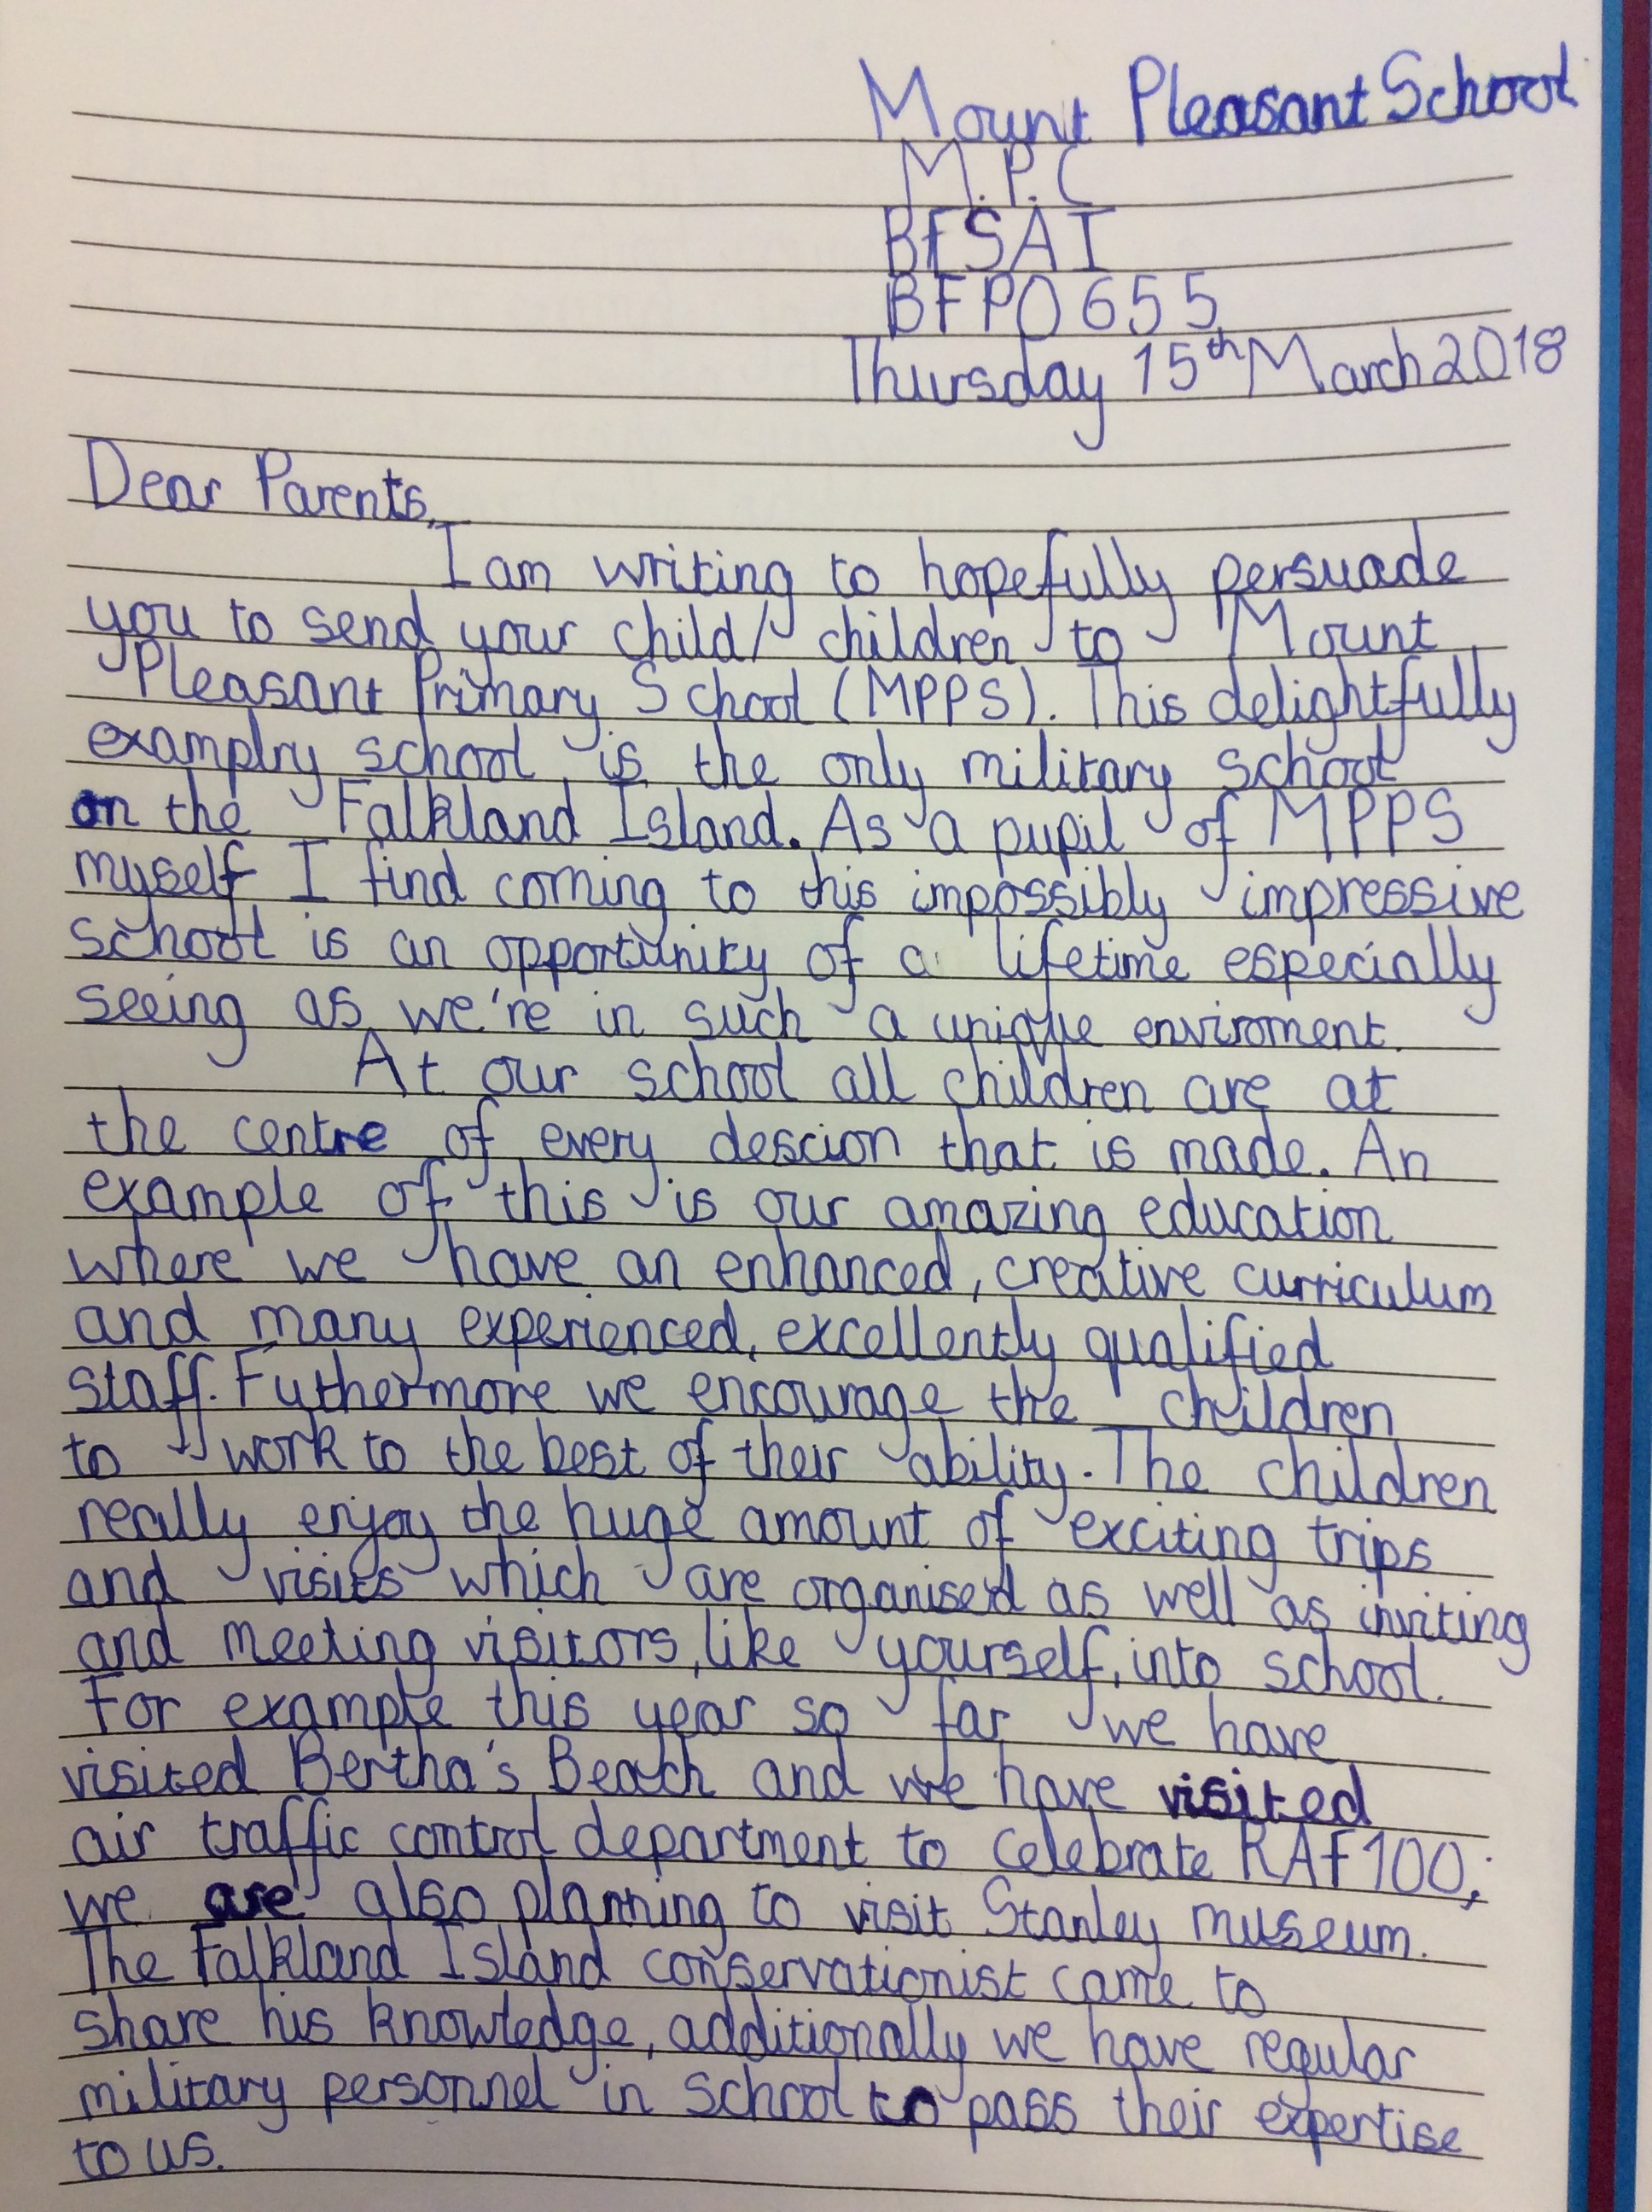 Mount Pleasant School
M.P.C
BFSAI
BFPO 655
Thursday 15th March 2018
Dear Parents,
I am writing to hopefully persuade
you to send your child/ children to Mount
Pleasant Primary School (MPPS). This delightfully
examplry school is the only military school
on the Falkland Island. As a pupil of MPPS
myself I find coming to this impossibly impressive
school is an opportunity of a lifetime especially
seeing as we're in such a unique enviroment.
At our school all children are at
the centre of every descion that is made. An
example of this is our amazing education
where we have an enhanced, creative curriculum
and many experienced, excellently qualified
staff. Futhermore we encourage the children
to work to the best of their ability. The children
really enjoy the huge amount of exciting trips
and visits which are organised as well as inviting
and meeting visitors, like yourself, into school.
For example this year so far we have
visited Bertha's Beach and we have visited
air traffic control department to celebrate RAF 100;
we are also planning to visit Stanley museum.
The Falkland Island conservationist came to
share his knowledge, additionally we have regular
military personnel in school to pass their expertise
to us.